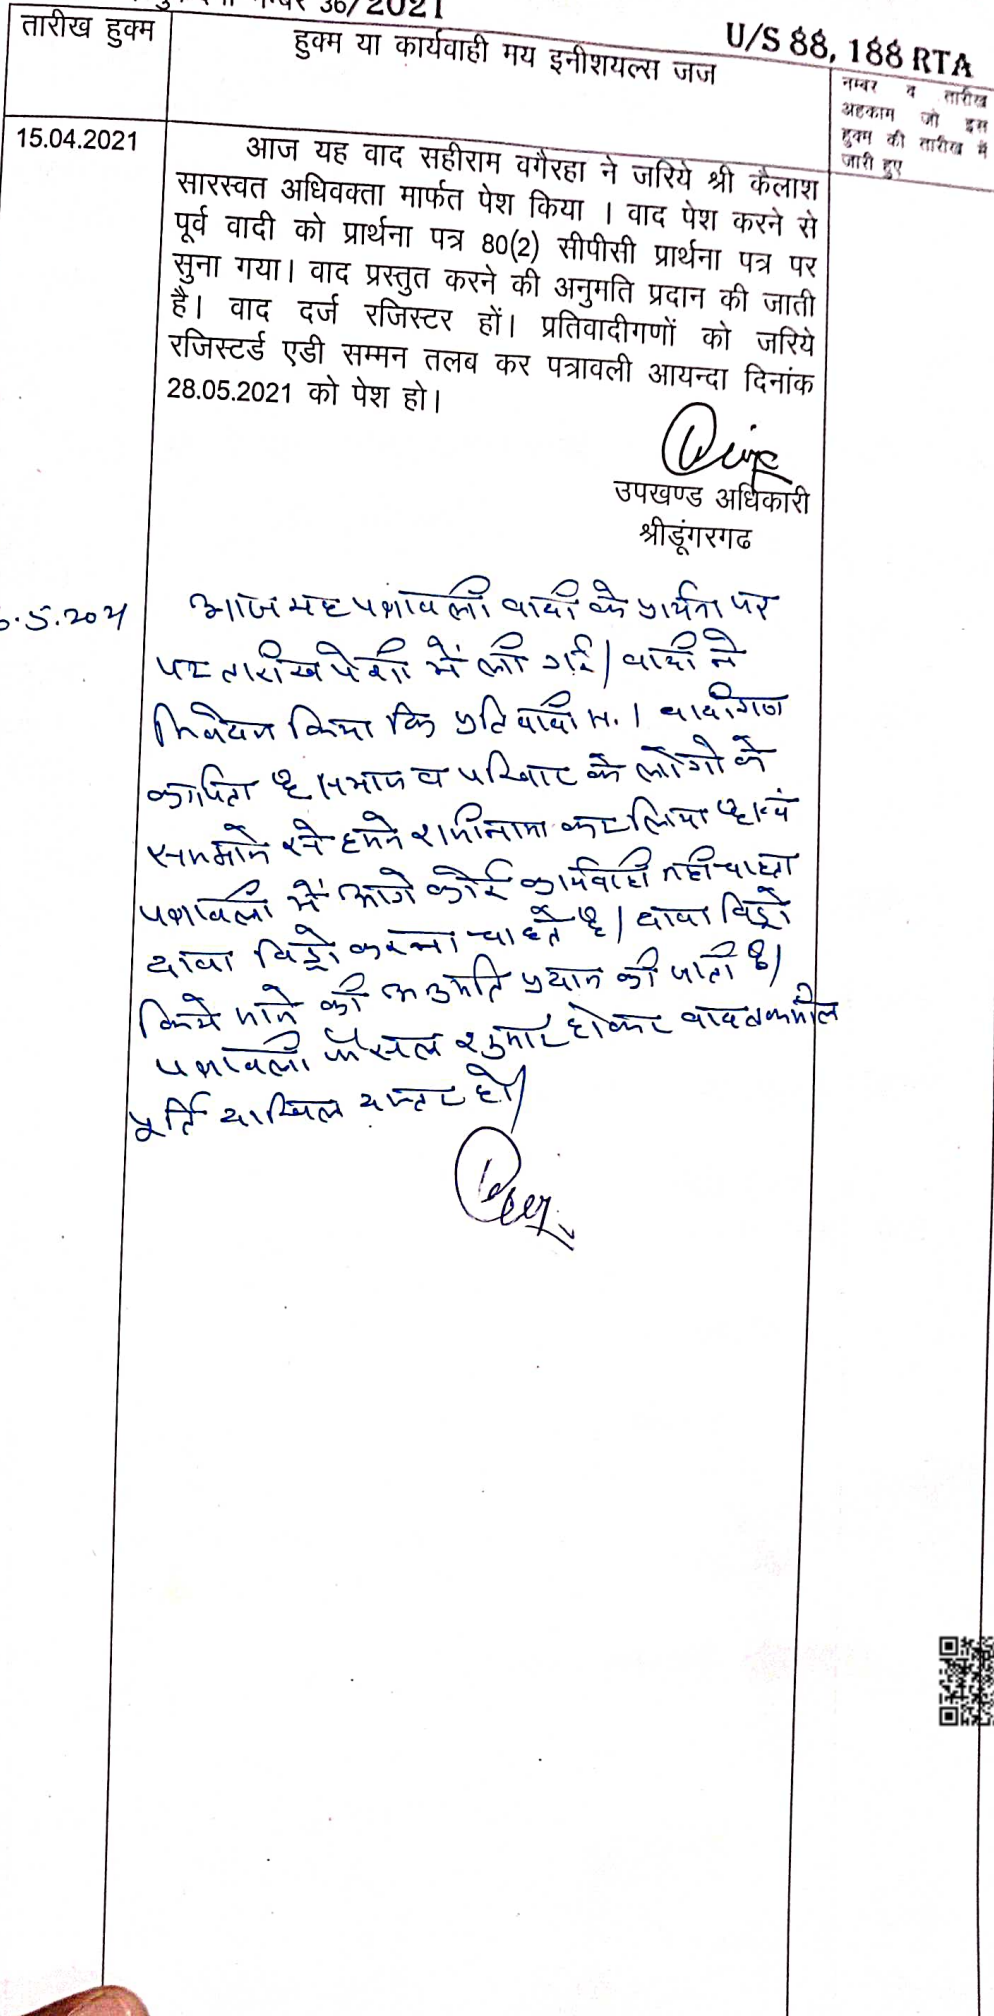 नम्बर 36/2021
U/S 88, 188 RTA
तारीख हुक्म
हुक्म या कार्यवाही मय इनीशयल्स जज
नम्बर व तारीख
अहकाम जो इस
हुक्म की तारीख में
जारी हुए
15.04.2021
आज यह वाद सहीराम वगैरहा ने जरिये श्री कैलाश
सारस्वत अधिवक्ता मार्फत पेश किया । वाद पेश करने से
पूर्व वादी को प्रार्थना पत्र 80(2) सीपीसी प्रार्थना पत्र पर
सुना गया। वाद प्रस्तुत करने की अनुमति प्रदान की जाती
है। वाद दर्ज रजिस्टर हों। प्रतिवादीगणों को जरिये
रजिस्टर्ड एडी सम्मन तलब कर पत्रावली आयन्दा दिनांक
28.05.2021 को पेश हो।
उपखण्ड अधिकारी
श्रीडूंगरगढ
.5.2021
आज यह पत्रावली वादी के प्रार्थना पत्र
पर तारीख पेशी में ली गई। वादी ने
निवेदन किया कि प्रतिवादी नं. 1 वादीगण
का पिता है समाज व परिवार के लोगो के
समझाने से हमने राजीनामा कर लिया है
पत्रावली में आगे कोई कार्यवाही नही चाहते
दावा विड्रो करना चाहते है। दावा विड्रो
किये जाने की अनुमति प्रदान की जाती है।
पत्रावली फैसल शुमार होकर बाद तकमील
पूर्ति दाखिल दफ्तर हो।